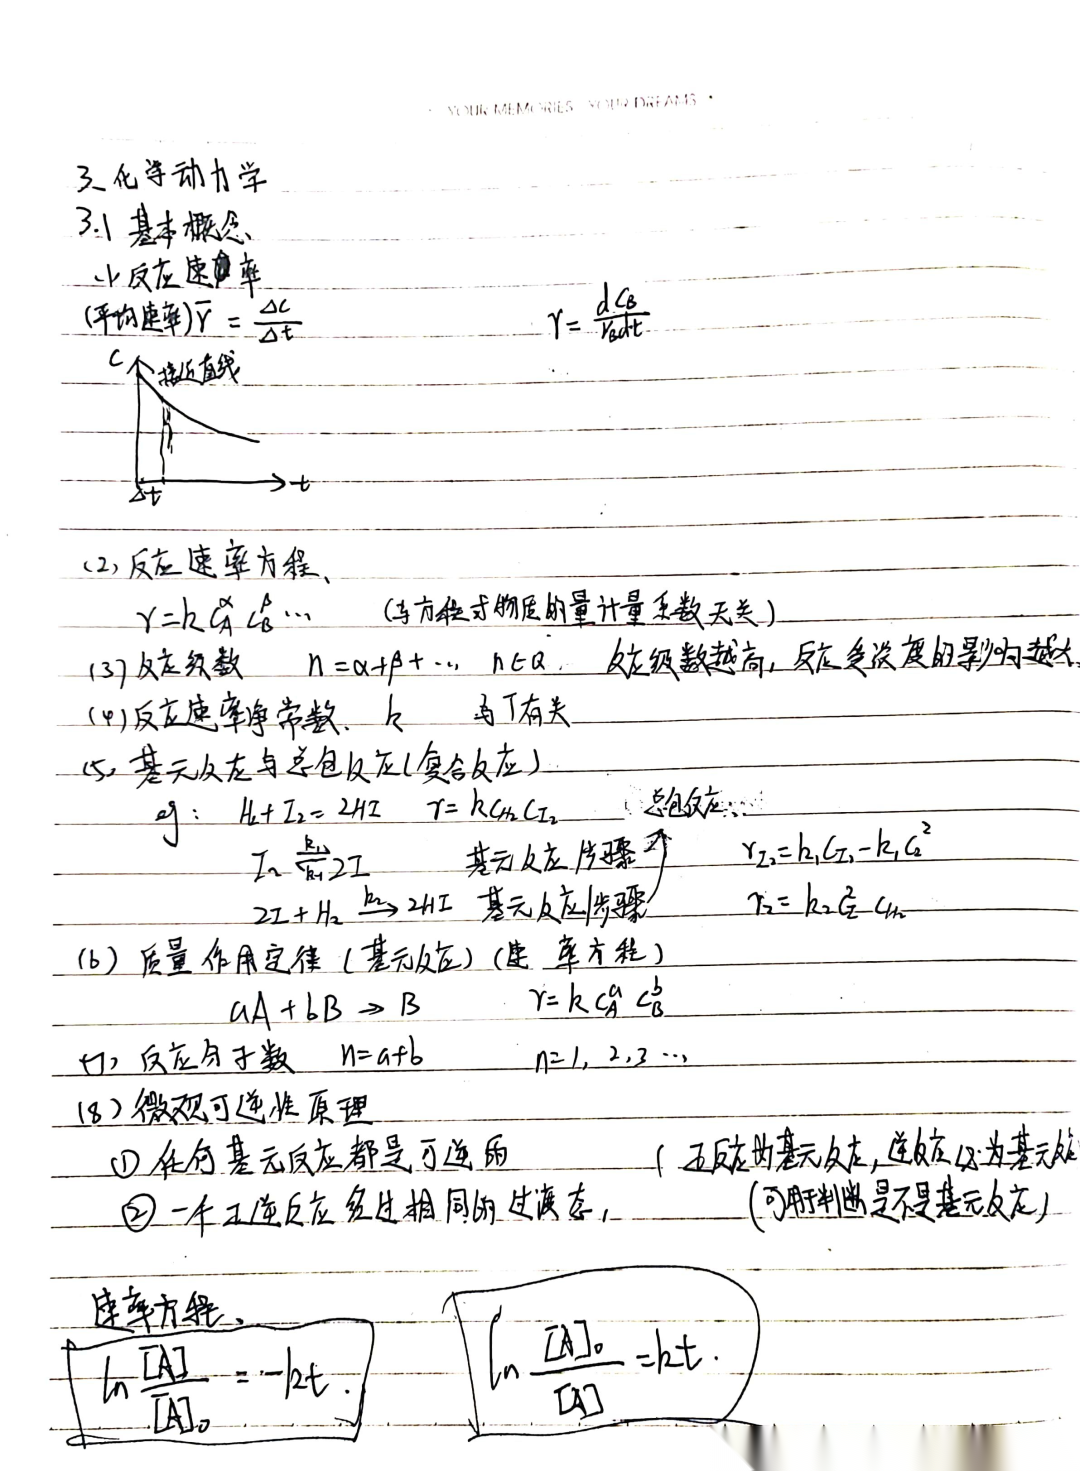 YOUR MEMORIES YOUR DREAMS
3、化学动力学
3.1 基本概念、
(1) 反应速率
(平均速率) r̄ = ΔC/Δt    r = dC_B/(ν_B dt)
C 接近直线
Δt t
(2) 反应速率方程、
r = k C_A^α C_B^β …    (与方程式物质的量计量系数无关)
(3) 反应级数    n = α+β+…, n∈Q.    反应级数越高, 反应受浓度的影响越大
(4) 反应速率常数.    k    与T有关
(5) 基元反应与总包反应(复合反应)
eg: H₂+I₂=2HI    r = kC_H₂ C_I₂    (总包反应)
I₂ ⇌ 2I (k₁, k₋₁)    基元反应步骤    r_I₂ = k₁C_I₂ - k₁C_I²
2I+H₂ →(k₂) 2HI    基元反应步骤    r₂ = k₂C_I² C_H₂
(6) 质量作用定律 (基元反应) (速率方程)
aA + bB → B    r = k C_A^a C_B^b
(7) 反应分子数    n=a+b    n=1, 2, 3 …
(8) 微观可逆性原理
① 任何基元反应都是可逆的    (正反应为基元反应, 逆反应必为基元反应
② 一个正逆反应经过相同的过渡态,    (可用于判断是不是基元反应)
速率方程、
ln [A]/[A]₀ = -kt.    ln [A]₀/[A] = kt.